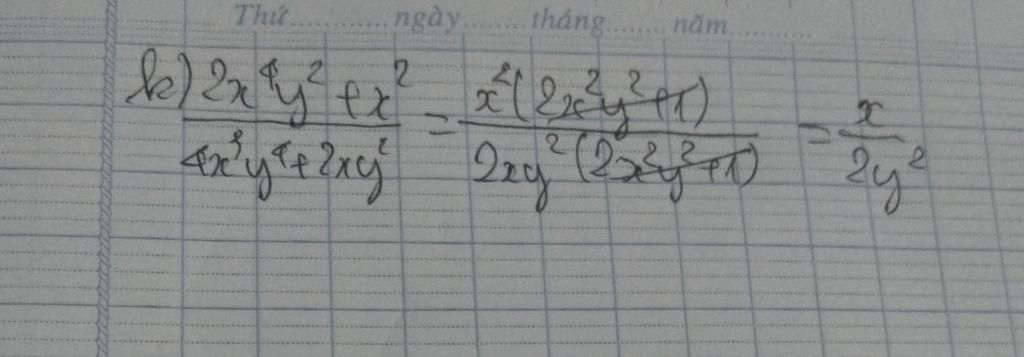 Thứ.............ngày........tháng........năm............
k) \frac{2x^4y^2+x^2}{4x^3y^4+2xy^2} = \frac{x^2(2x^2y^2+1)}{2xy^2(2x^2y^2+1)} = \frac{x}{2y^2}